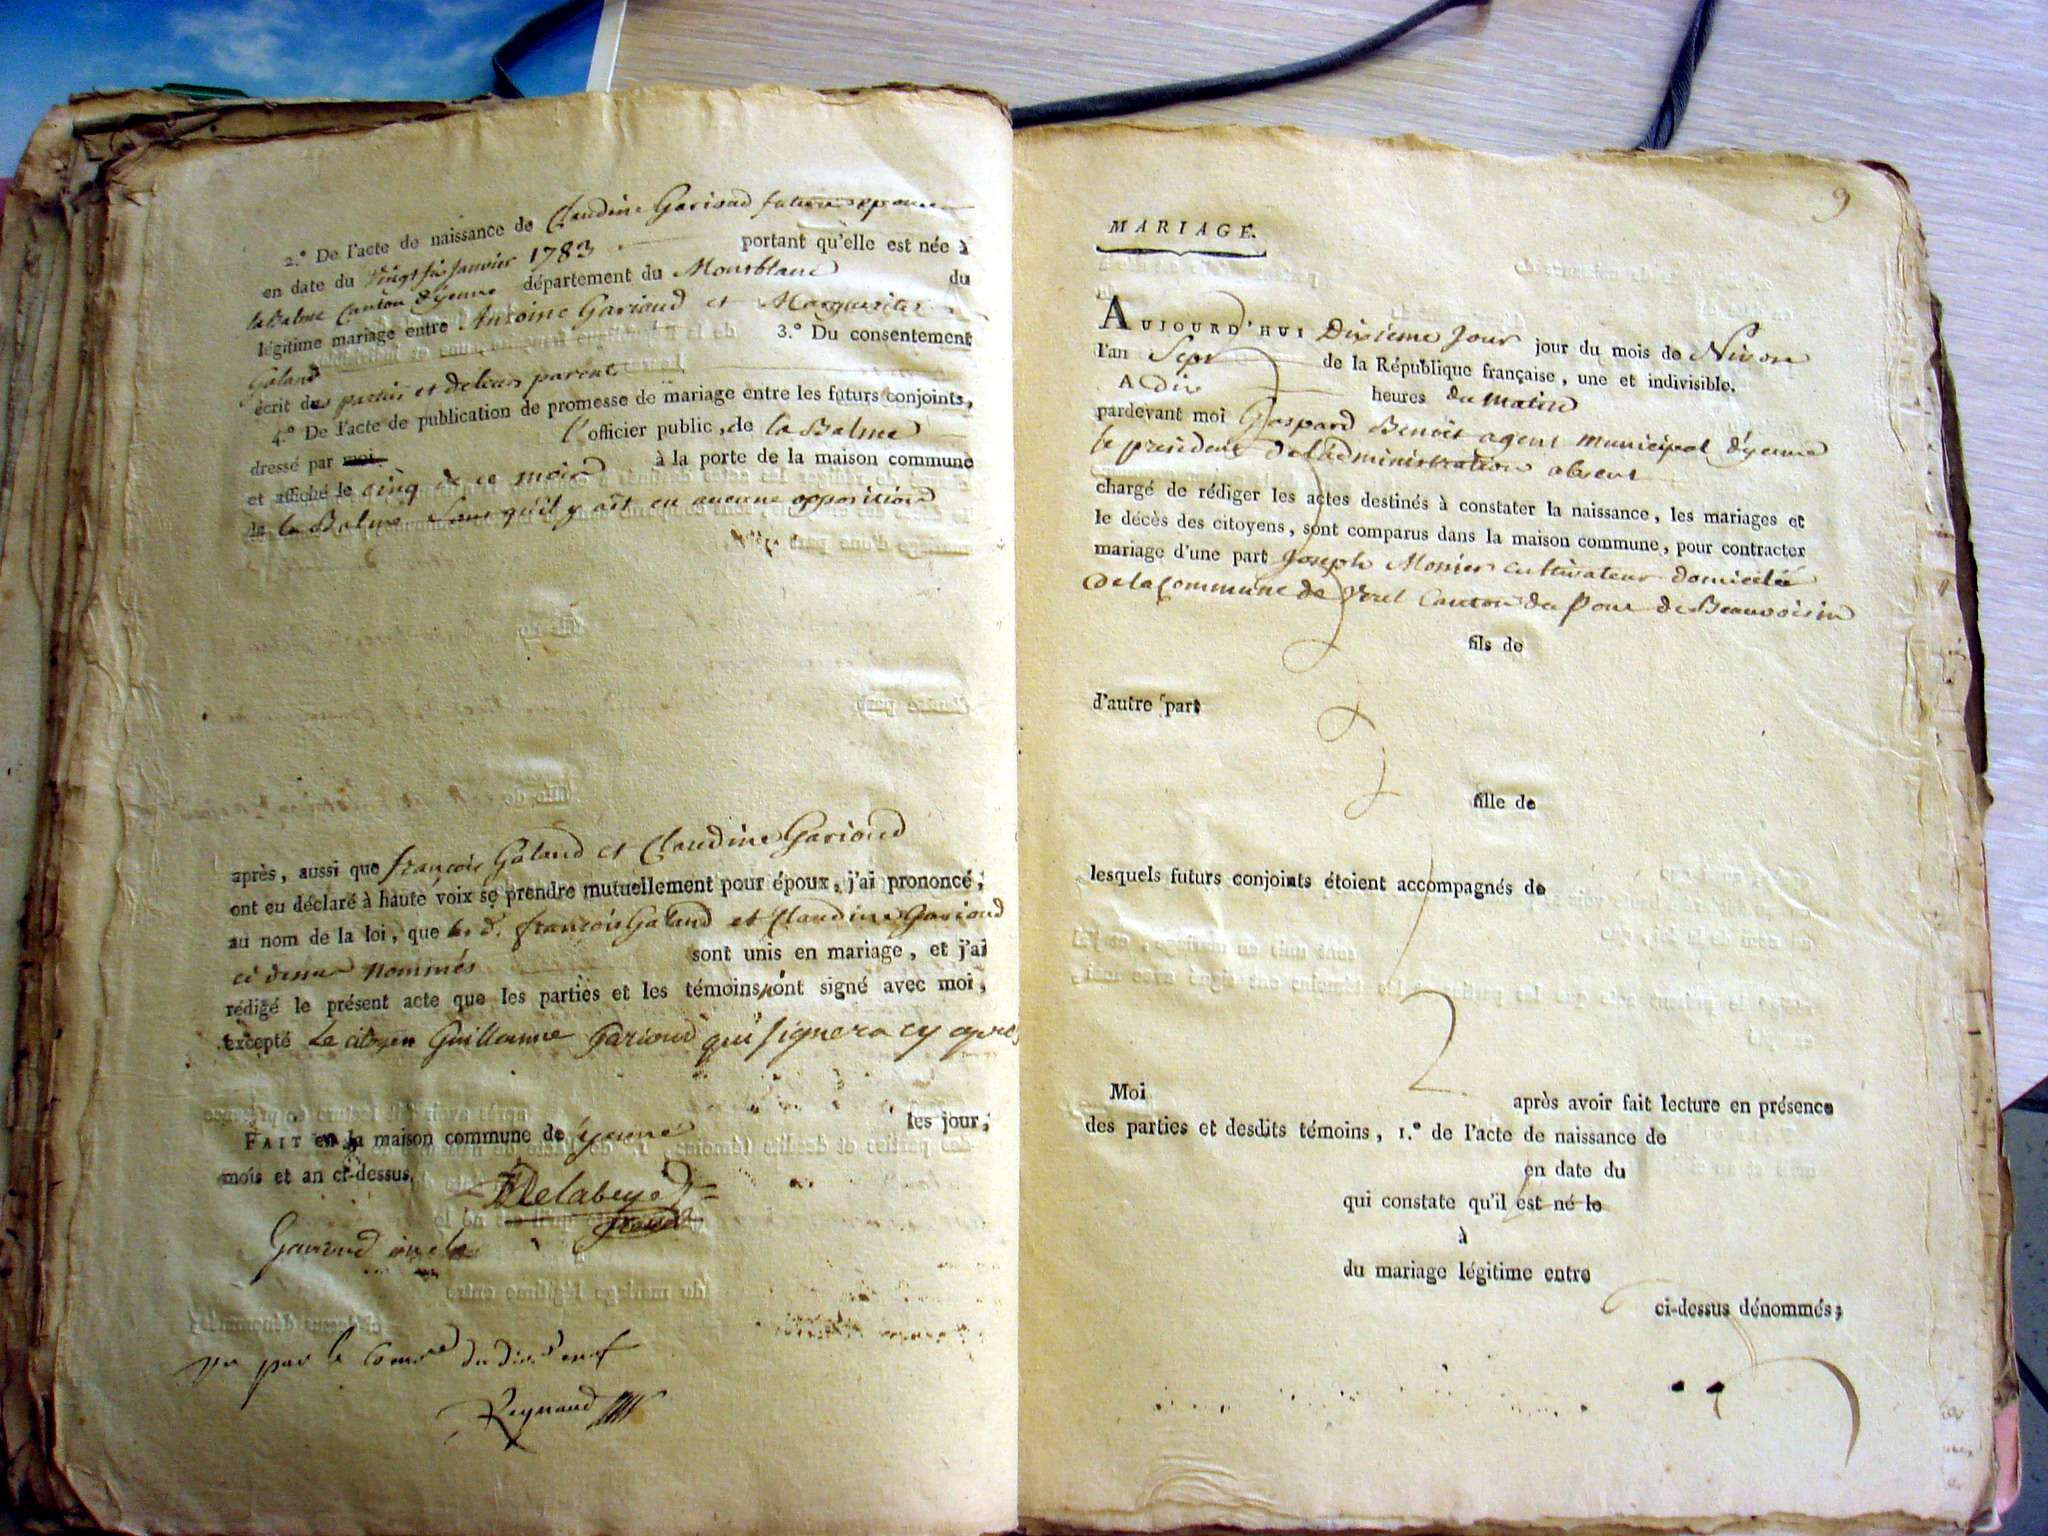 2.° De l'acte de naissance de Claudine Garioud future epouse
en date du vingt six Janvier 1783 portant qu'elle est née à
la Balme Canton d'yenne département du Montblanc du
légitime mariage entre Antoine Garioud et Marguerite
Galand 3.° Du consentement
écrit des parties et de leurs parents
4.° De l'acte de publication de promesse de mariage entre les futurs conjoints,
dressé par moi l'officier public, de la Balme
et affiché le cinq de ce mois à la porte de la maison commune
de la Balme Sans qu'il y ait eu aucune opposition
après, aussi que françois Galand et Claudine Garioud
ont eu déclaré à haute voix se prendre mutuellement pour époux, j'ai prononcé,
au nom de la loi, que les d. françois Galand et Claudine Garioud
ci dessus nommés sont unis en mariage, et j'ai
rédigé le présent acte que les parties et les témoins, ont signé avec moi,
excepté Le citoyen Guillaume Garioud qui signera cy apres
FAIT en la maison commune de yenne les jour,
mois et an ci-dessus.
Delabeye
Garioud
vu par le
Reynaud
9
MARIAGE.
AUJOURD'HUI Dixieme Jour jour du mois de Nivose
l'an Sept de la République française, une et indivisible.
A Dix heures du matin
pardevant moi Gaspard Benoit agent municipal d'yenne
le president de l'administration absent
chargé de rédiger les actes destinés à constater la naissance, les mariages et
le décès des citoyens, sont comparus dans la maison commune, pour contracter
mariage d'une part Joseph Monier cultivateur domicilié
de la Commune de Verel Canton du Pont de Beauvoisin
fils de
d'autre part
fille de
lesquels futurs conjoints étoient accompagnés de
Moi après avoir fait lecture en présence
des parties et desdits témoins, 1.° de l'acte de naissance de
en date du
qui constate qu'il est né le
à
du mariage légitime entre
ci-dessus dénommés;